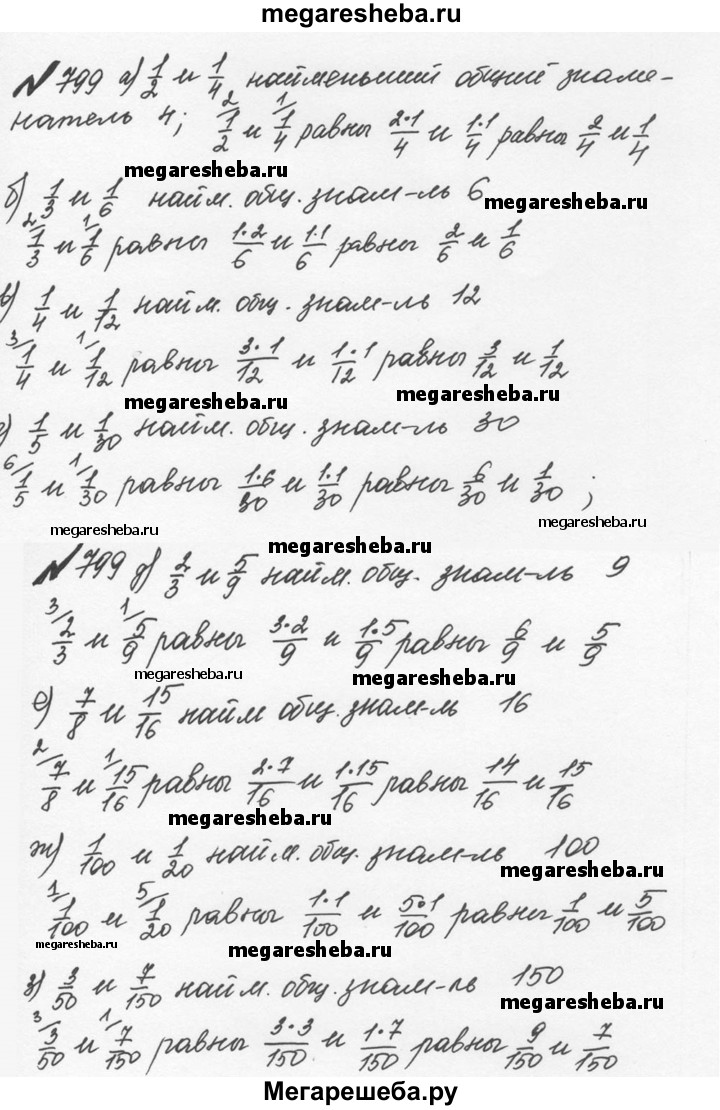 megaresheba.ru
№799 а) 1/2 и 1/4 наименьший общий знаме-
натель 4; 2/ 1/2 и 1/ 1/4 равны 2·1/4 и 1·1/4 равны 2/4 и 1/4
megaresheba.ru
б) 1/3 и 1/6 найм. общ. знам-ль 6
megaresheba.ru
2/ 1/3 и 1/ 1/6 равны 1·2/6 и 1·1/6 равны 2/6 и 1/6
megaresheba.ru
в) 1/4 и 1/12 найм. общ. знам-ль 12
3/ 1/4 и 1/ 1/12 равны 3·1/12 и 1·1/12 равны 3/12 и 1/12
megaresheba.ru megaresheba.ru
г) 1/5 и 1/30 найм. общ. знам-ль 30
6/ 1/5 и 1/ 1/30 равны 1·6/30 и 1·1/30 равны 6/30 и 1/30;
megaresheba.ru megaresheba.ru
megaresheba.ru
№799 д) 2/3 и 5/9 найм. общ. знам-ль 9
3/ 2/3 и 1/ 5/9 равны 3·2/9 и 1·5/9 равны 6/9 и 5/9
megaresheba.ru megaresheba.ru
е) 7/8 и 15/16 найм общ. знам-ль 16
2/ 7/8 и 1/ 15/16 равны 2·7/16 и 1·15/16 равны 14/16 и 15/16
megaresheba.ru
ж) 1/100 и 1/20 найм. общ. знам-ль 100
megaresheba.ru
1/ 1/100 и 5/ 1/20 равны 1·1/100 и 5·1/100 равны 1/100 и 5/100
megaresheba.ru megaresheba.ru
з) 3/50 и 7/150 найм. общ. знам-ль 150
megaresheba.ru
3/ 3/50 и 1/ 7/150 равны 3·3/150 и 1·7/150 равны 9/150 и 7/150
Мегарешеба.ру